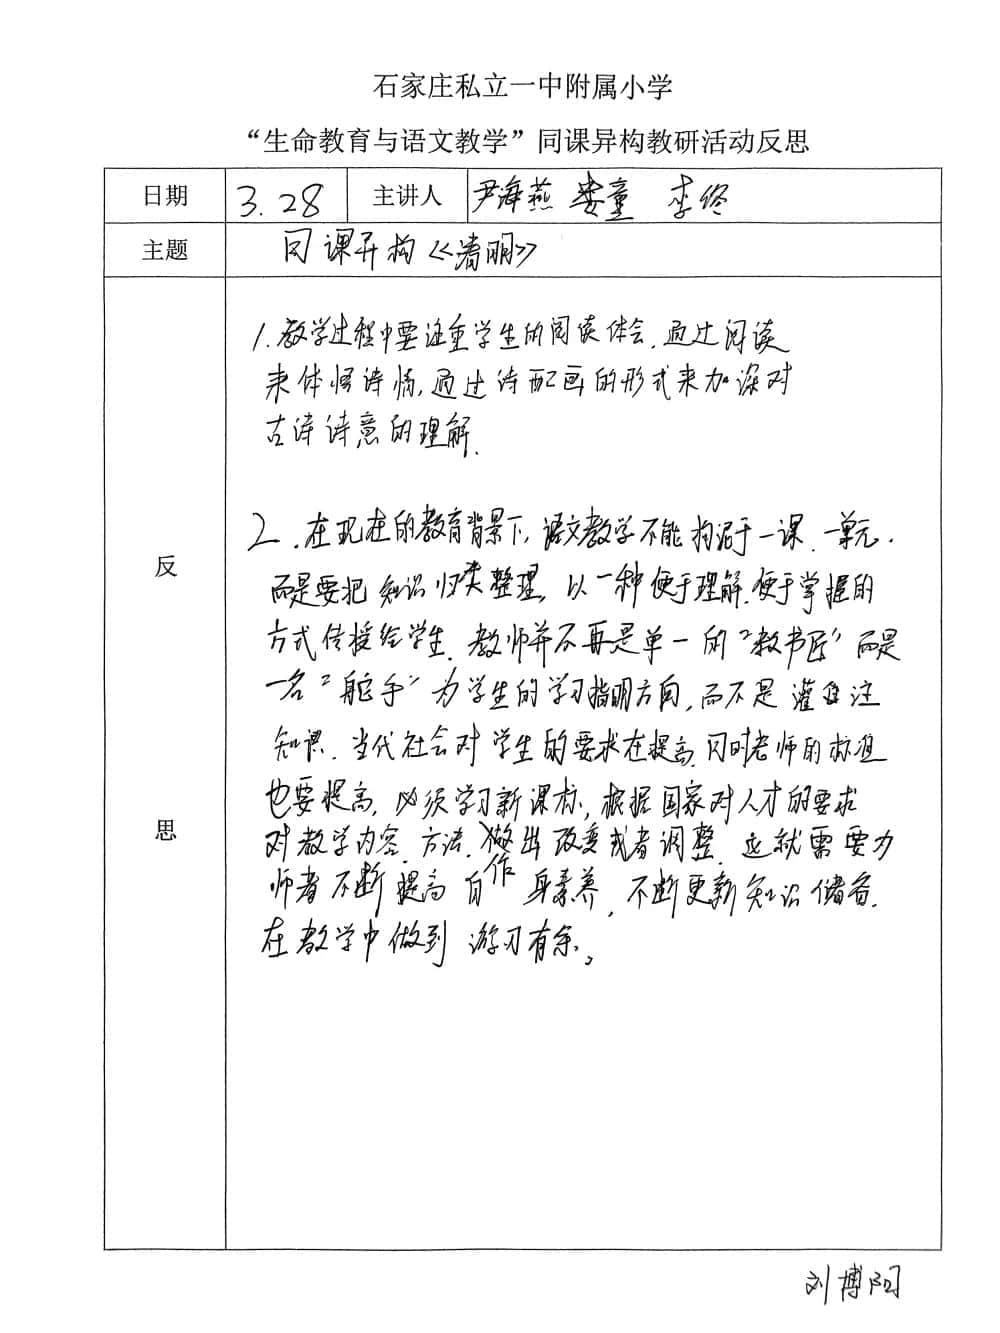 石家庄私立一中附属小学
“生命教育与语文教学”同课异构教研活动反思
日期 3.28 主讲人 尹海燕 娄童 李终
主题 同课异构《清明》
反思
1.教学过程中要注重学生的阅读体会.通过阅读
来体悟诗情,通过诗配画的形式来加深对
古诗诗意的理解.
2.在现在的教育背景下,语文教学不能拘泥于一课.一单元.
而是要把知识归类整理,以一种便于理解.便于掌握的
方式传授给学生.教师并不再是单一的“教书匠”而是
一名“舵手”为学生的学习指明方向,而不是灌注
知识.当代社会对学生的要求在提高,同时老师的标准
也要提高,必须学习新课标,根据国家对人才的要求
对教学内容.方法.做出改变或者调整.这就需要为
师者不断提高自身素养,不断更新知识储备.
作
在教学中做到游刃有余。
刘博阳